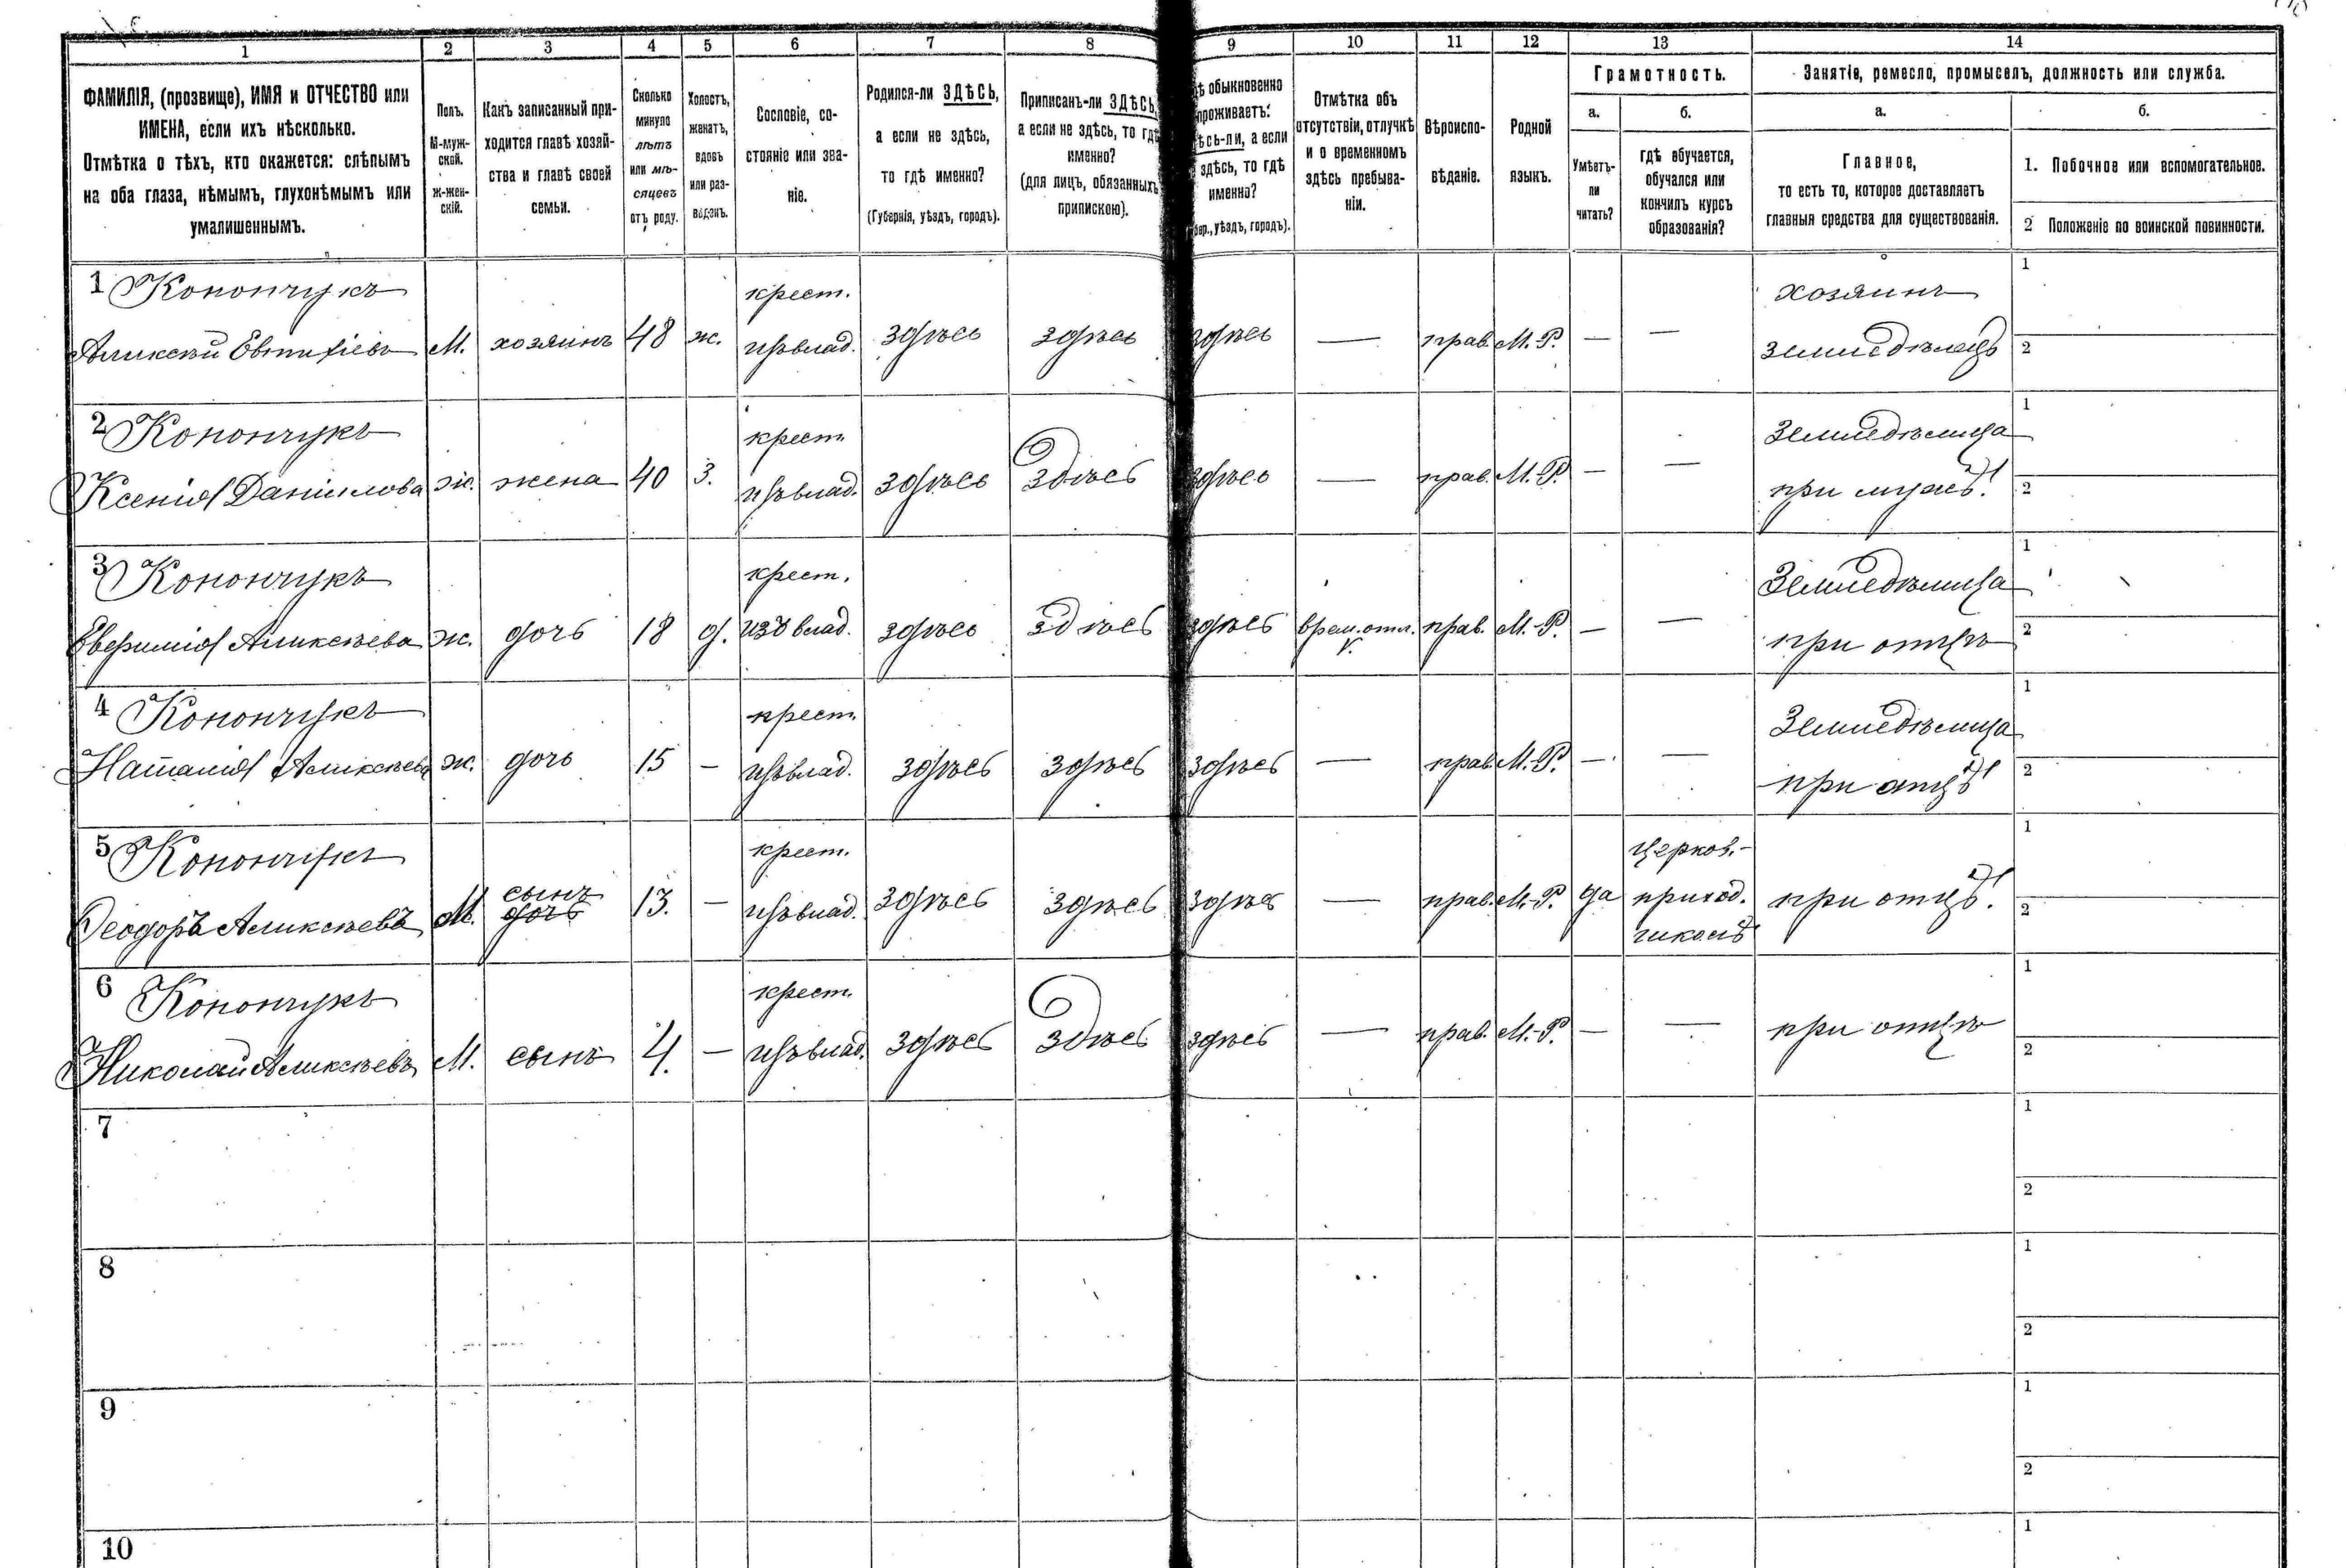 1 2 3 4 5 6 7 8 9 10 11 12 13 14
ФАМИЛІЯ, (прозвище), ИМЯ и ОТЧЕСТВО или
ИМЕНА, если ихъ нѣсколько.
Отмѣтка о тѣхъ, кто окажется: слѣпымъ
на оба глаза, нѣмымъ, глухонѣмымъ или
умалишеннымъ.
Полъ.
М-муж-
ской.
Ж-жен-
скій.
Какъ записанный при-
ходится главѣ хозяй-
ства и главѣ своей
семьи.
Сколько
минуло
лѣтъ
или мѣ-
сяцевъ
отъ роду.
Холостъ,
женатъ,
вдовъ
или раз-
веденъ.
Сословіе, со-
стояніе или зва-
ніе.
Родился-ли ЗДѢСЬ,
а если не здѣсь,
то гдѣ именно?
(Губернія, уѣздъ, городъ).
Приписанъ-ли ЗДѢСЬ,
а если не здѣсь, то гдѣ
именно?
(для лицъ, обязанныхъ
припискою).
ѣ обыкновенно
проживаетъ:
ѣсь-ли, а если
здѣсь, то гдѣ
именно?
бер., уѣздъ, городъ).
Отмѣтка объ
отсутствіи, отлучкѣ
и о временномъ
здѣсь пребыва-
ніи.
Вѣроиспо-
вѣданіе.
Родной
языкъ.
Грамотность.
а.
Умѣетъ-
ли
читать?
б.
гдѣ обучается,
обучался или
кончилъ курсъ
образованія?
Занятіе, ремесло, промыселъ, должность или служба.
а.
Главное,
то есть то, которое доставляетъ
главныя средства для существованія.
б.
1. Побочное или вспомогательное.
2 Положеніе по воинской повинности.
1 Конончукъ крест. хозяинъ 1
Алексѣй М. хозяинъ 48 ж. изъ влад. здѣсь здѣсь здѣсь — прав. М.-Р. — — земледѣлецъ 2
2 Конончукъ крест. Земледѣлица 1
Ксенія Даніилова ж. жена 40 З. изъ влад. здѣсь здѣсь здѣсь — прав. М.-Р. — — при мужѣ. 2
3 Конончукъ крест. Земледѣлица 1
Евфимія Алексѣева ж. дочь 18 д. изъ влад. здѣсь здѣсь здѣсь врем. отл. прав. М.-Р. — — при отцѣ 2
V.
4 Конончукъ крест. Земледѣлица 1
Наталія Алексѣева ж. дочь 15 — изъ влад. здѣсь здѣсь здѣсь — прав. М.-Р. — — при отцѣ 2
5 Конончукъ крест. церков.- 1
сынъ
Ѳеодоръ Алексѣевъ М. дочь 13. — изъ влад. здѣсь здѣсь здѣсь — прав. М.-Р. да приход. при отцѣ. 2
школѣ
6 Конончукъ крест. 1
Николай Алексѣевъ М. сынъ 4. — изъ влад. здѣсь здѣсь здѣсь — прав. М.-Р. — — при отцѣ 2
7 1
2
8 1
2
9 1
2
10 1